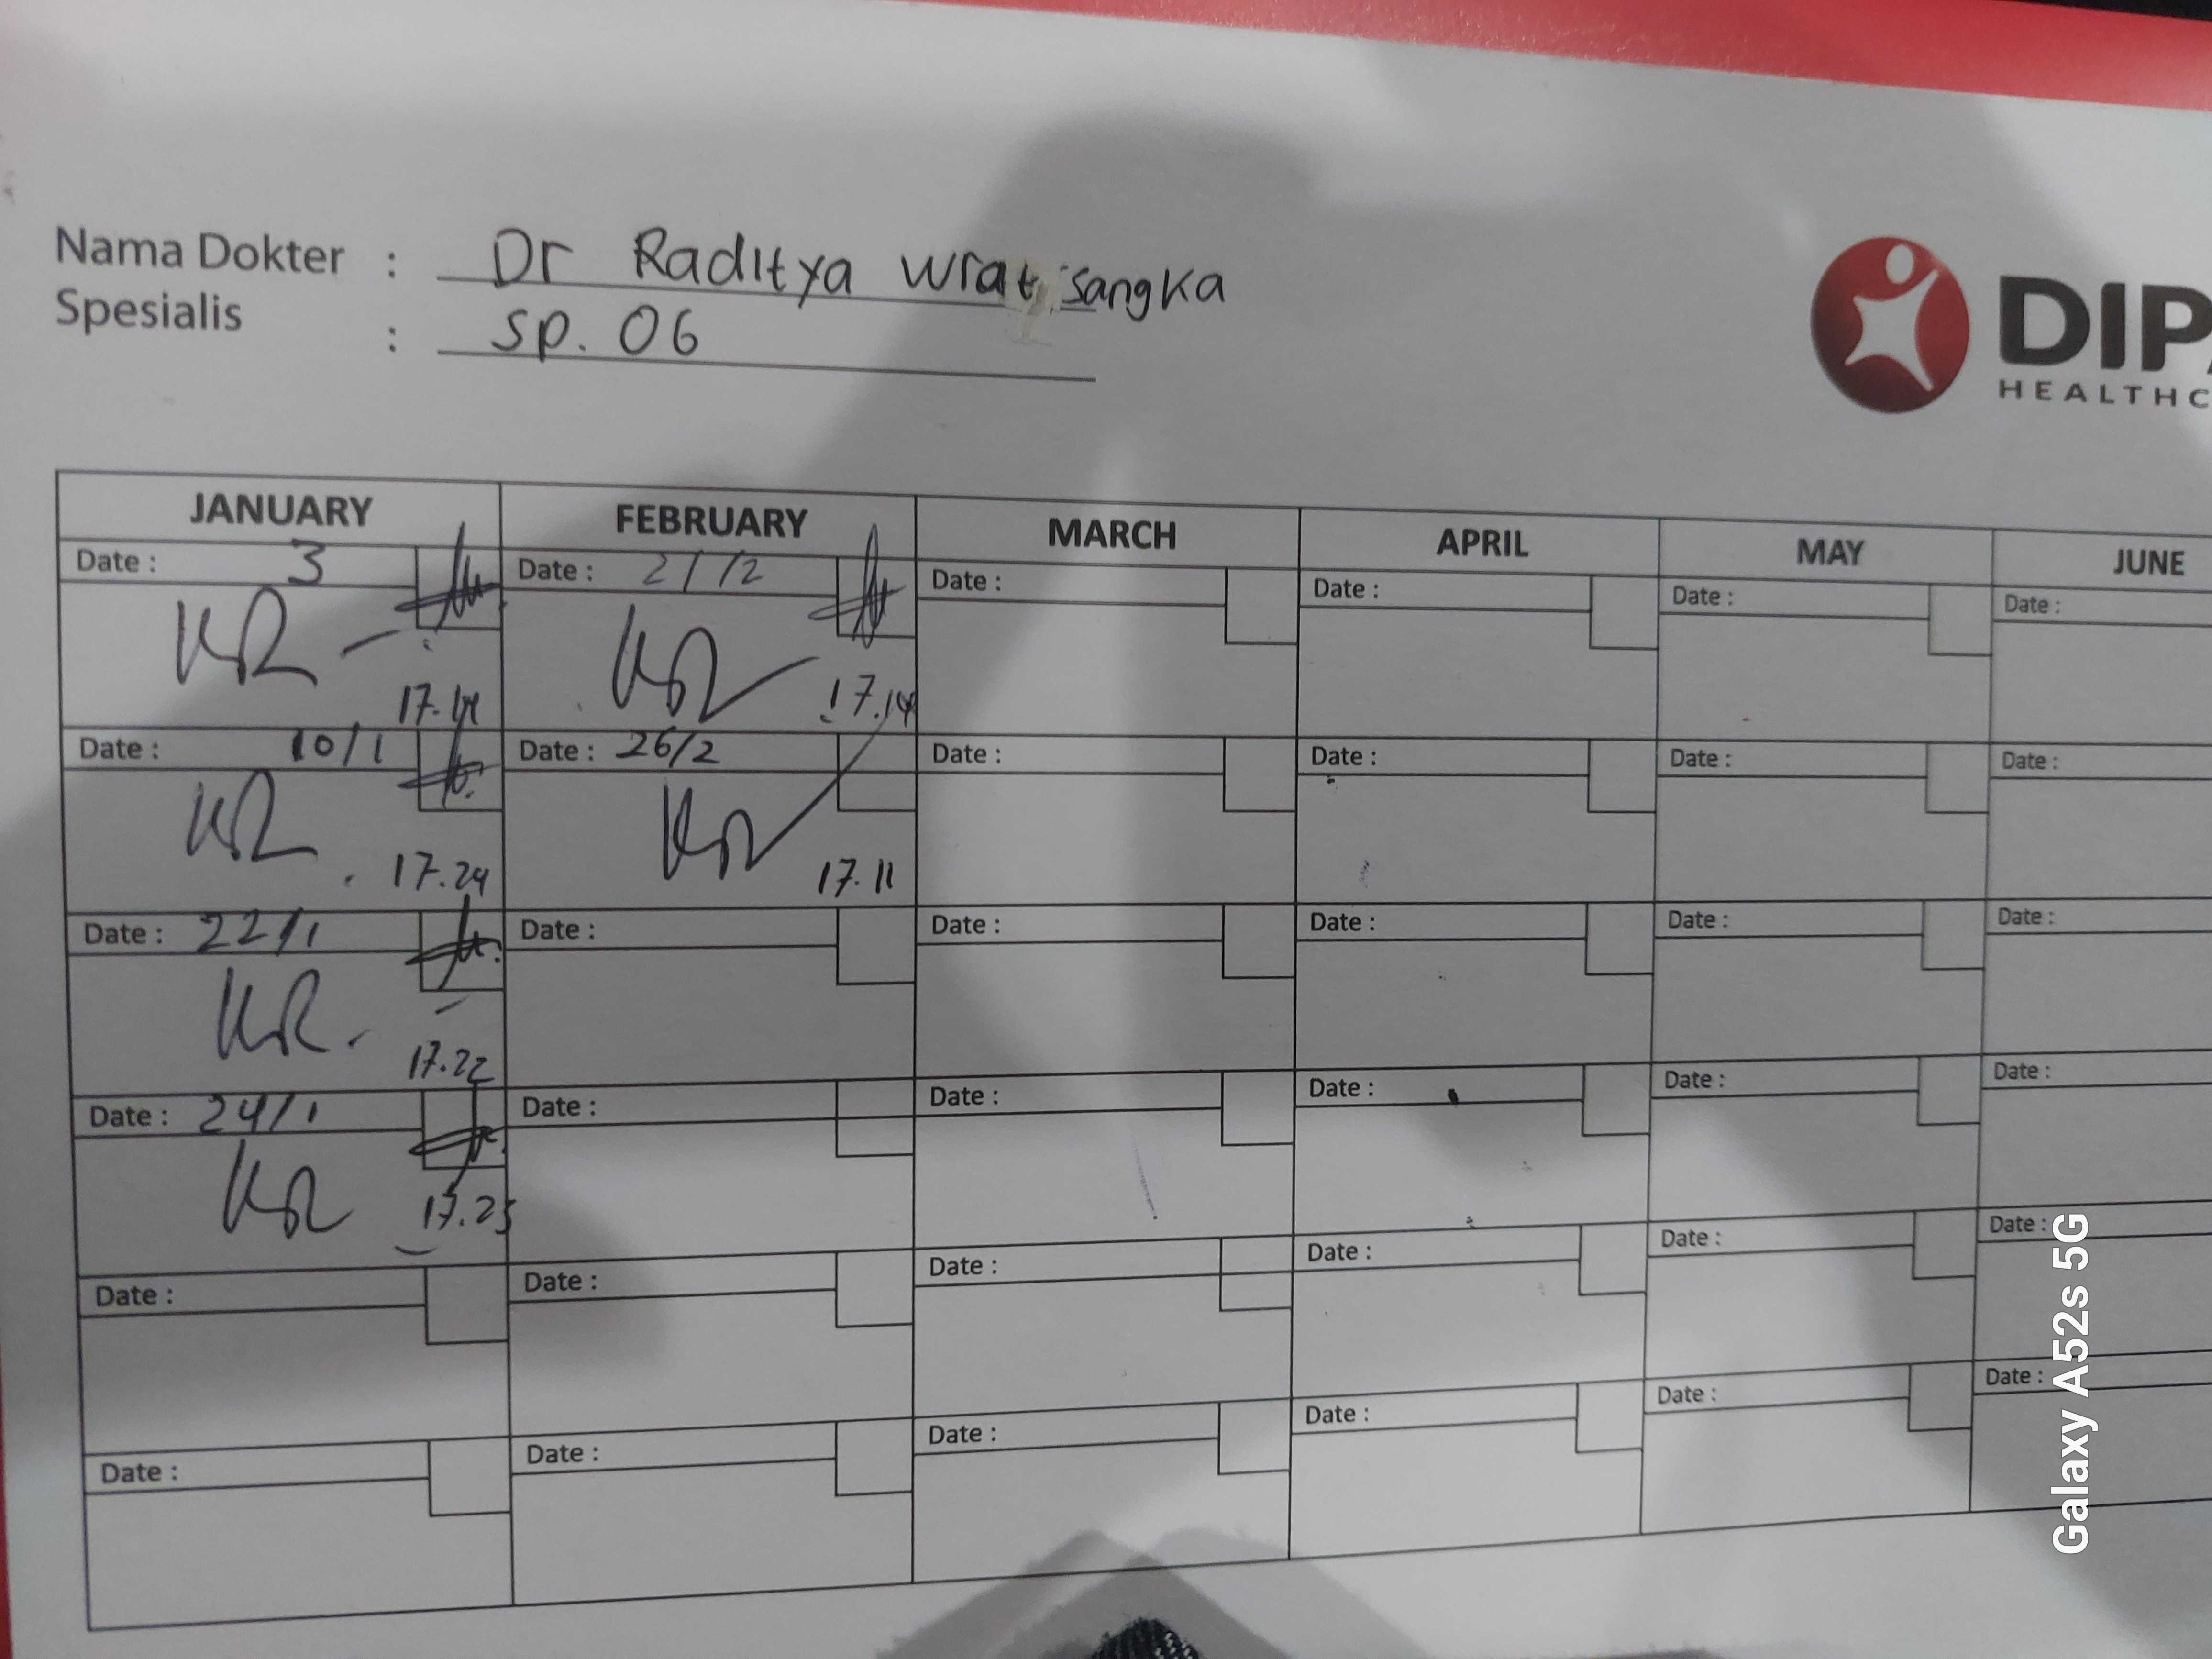 Nama Dokter : Dr Raditya Wratsangka
Spesialis : Sp. OG
DIP
HEALTHC
JANUARY FEBRUARY MARCH APRIL MAY JUNE
Date : 3 Date : 21/2 Date : Date : Date : Date :
17.14 17.14
Date : 10/1 Date : 26/2 Date : Date : Date : Date :
17.24 17.11
Date : 22/1 Date : Date : Date : Date : Date :
17.22
Date : 24/1 Date : Date : Date : Date : Date :
17.25
Date : Date : Date : Date : Date : Date :
Date : Date : Date : Date : Date : Date :
Galaxy A52s 5G